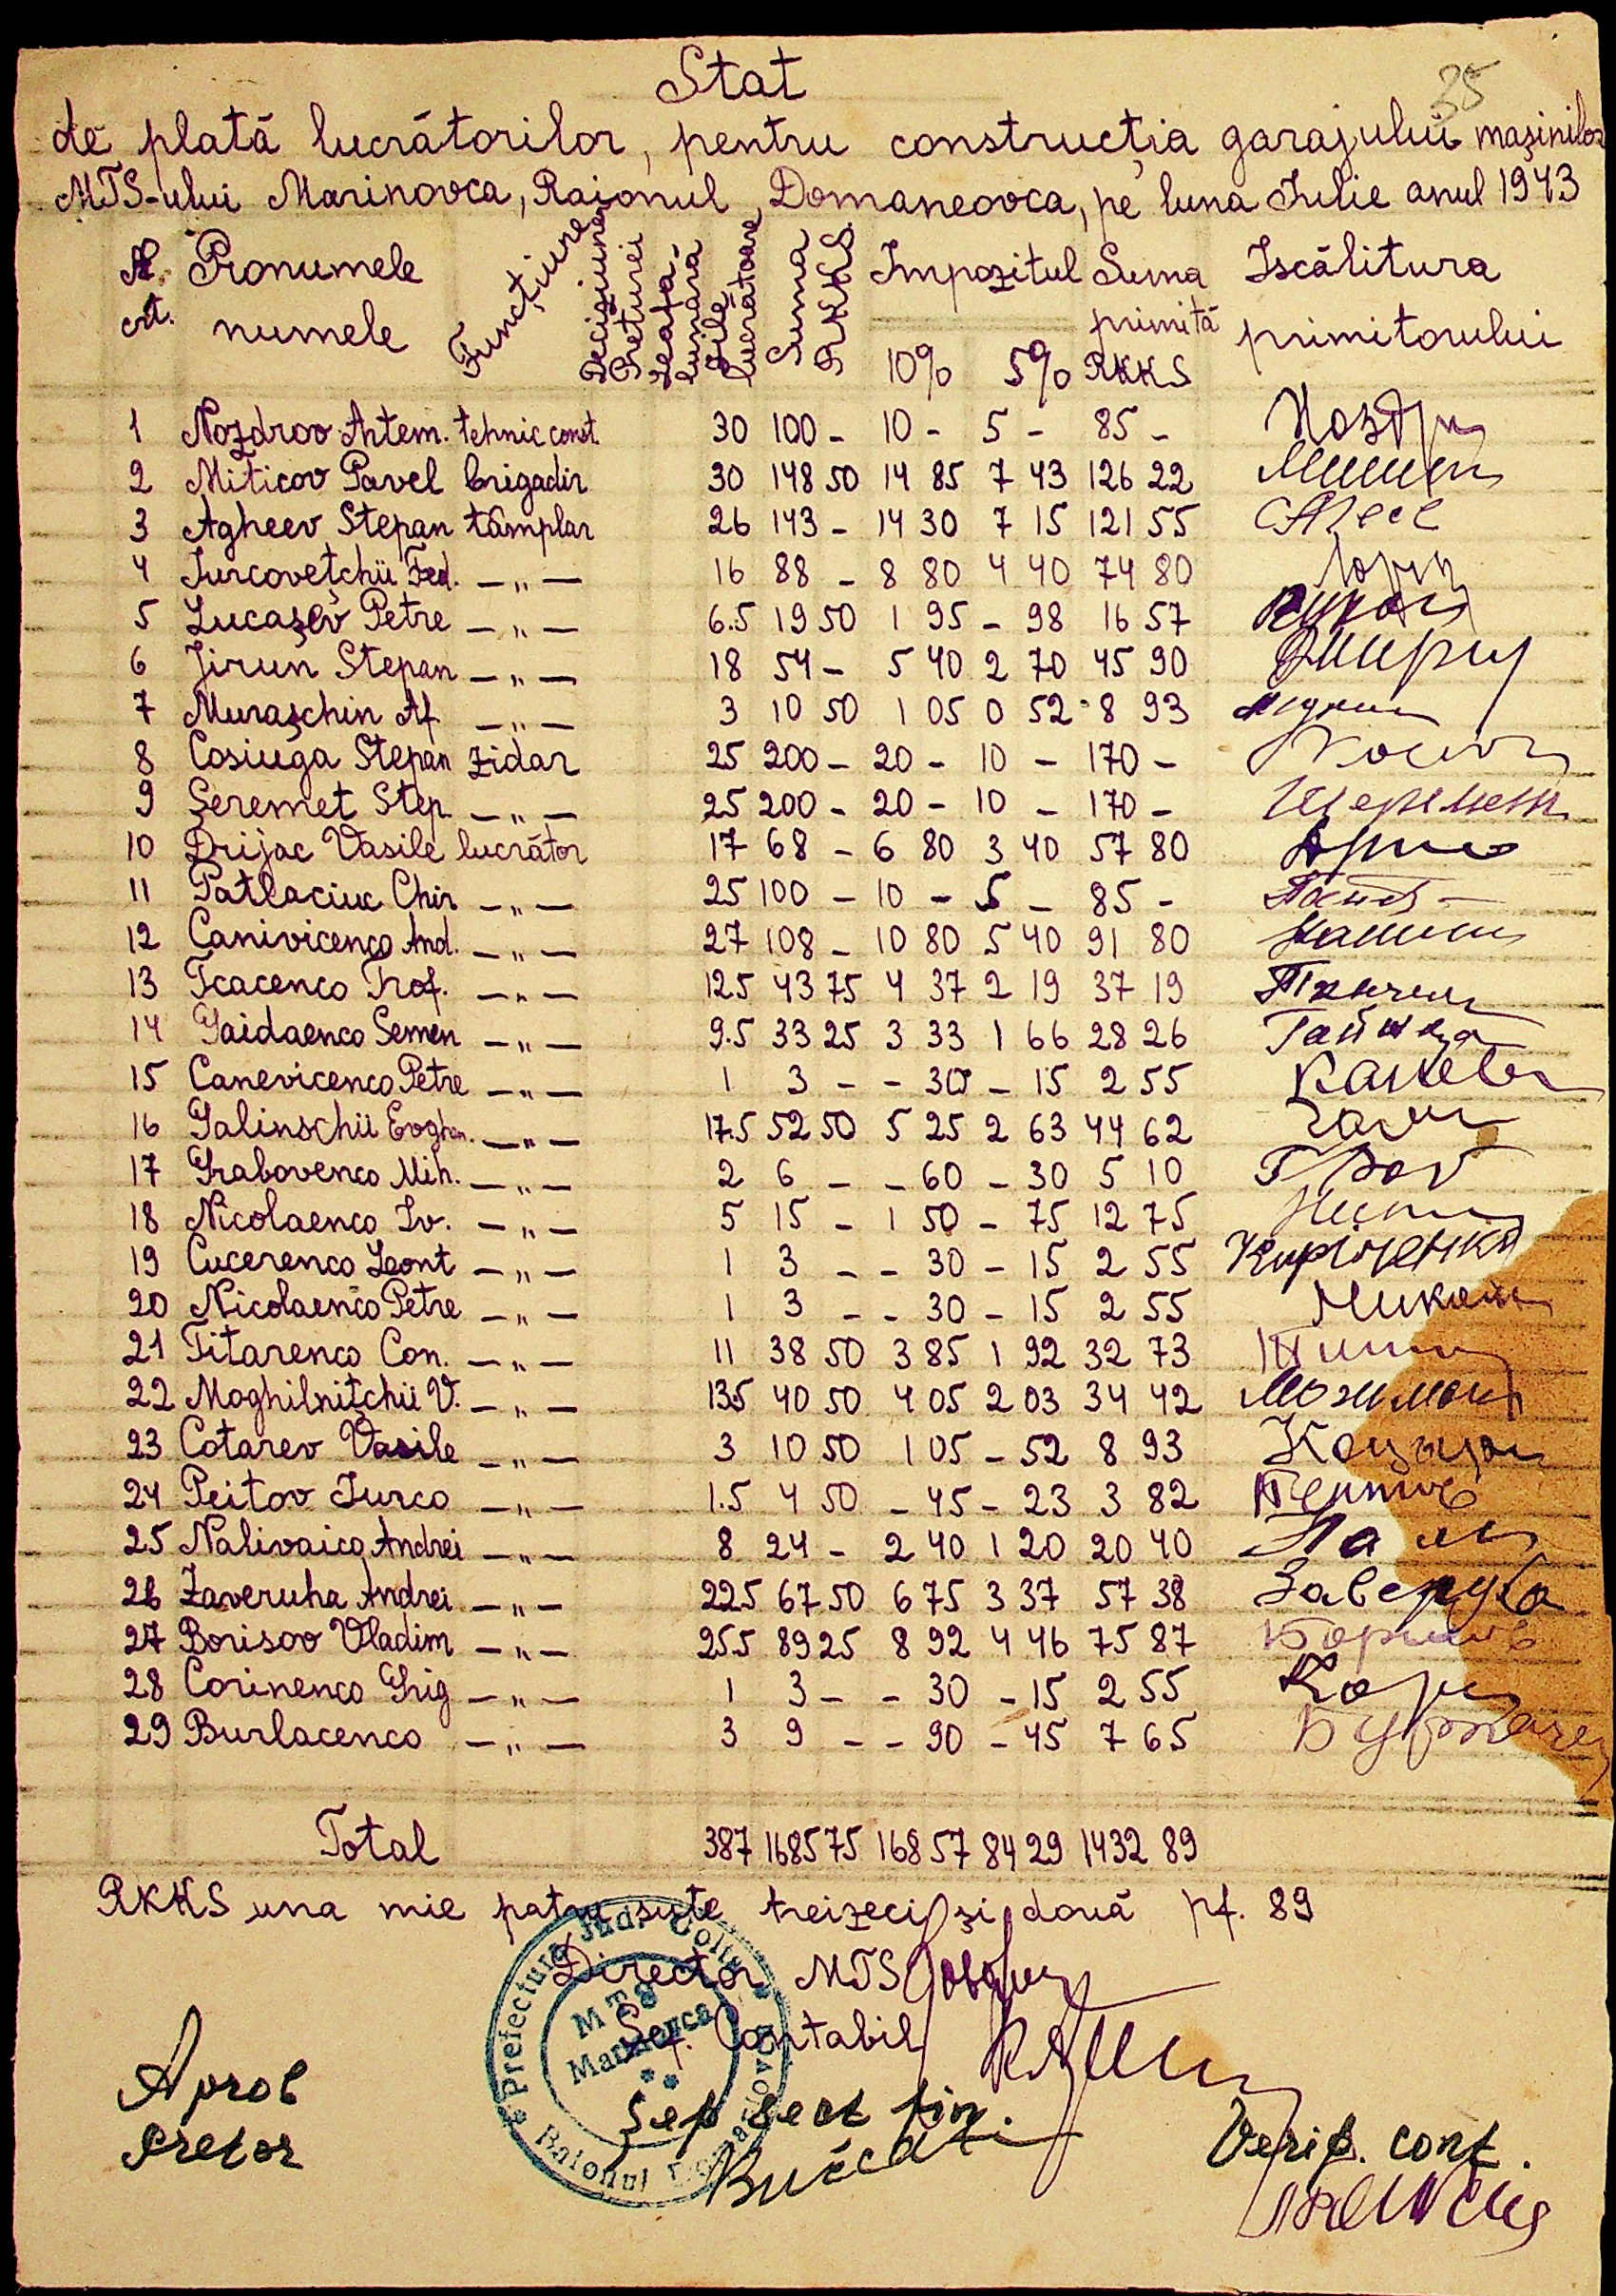 35
Stat
de plată lucrătorilor, pentru construcția garajului mașinilor
MTS-ului Marinovca, Raionul Domaneovca, pe luna Iulie anul 1943
N. crt. Pronumele numele Funcțiune Deciziunea Preturei Leafa lunară Zile lucrătoare Suma RKKS Impozitul 10% 5% Suma primită RKKS Iscălitura primitorului
1 Nozdrov Artem. tehnic const. 30 100 - 10 - 5 - 85 -
2 Miticov Pavel brigadir 30 148 50 14 85 7 43 126 22
3 Agheev Stepan tâmplar 26 143 - 14 30 7 15 121 55
4 Iurcovețchii Fed. —„— 16 88 - 8 80 4 40 74 80
5 Lucașev Petre —„— 6.5 19 50 1 95 - 98 16 57
6 Jirun Stepan —„— 18 54 - 5 40 2 70 45 90
7 Murașchin Af. —„— 3 10 50 1 05 0 52 8 93
8 Cosiuga Stepan zidar 25 200 - 20 - 10 - 170 -
9 Șeremet Step. —„— 25 200 - 20 - 10 - 170 - Шеремет
10 Drijac Vasile lucrător 17 68 - 6 80 3 40 57 80
11 Patlaciuc Chir —„— 25 100 - 10 - 5 - 85 -
12 Canivicenco And. —„— 27 108 - 10 80 5 40 91 80
13 Tcacenco Trof. —„— 12.5 43 75 4 37 2 19 37 19
14 Gaidaenco Semen —„— 9.5 33 25 3 33 1 66 28 26
15 Canevicenco Petre —„— 1 3 - - 30 - 15 2 55
16 Galinschii Evghen. —„— 17.5 52 50 5 25 2 63 44 62
17 Grabovenco Mih. —„— 2 6 - - 60 - 30 5 10
18 Nicolaenco Iv. —„— 5 15 - 1 50 - 75 12 75
19 Cucerenco Leont —„— 1 3 - - 30 - 15 2 55
20 Nicolaenco Petre —„— 1 3 - - 30 - 15 2 55
21 Titarenco Con. —„— 11 38 50 3 85 1 92 32 73
22 Moghilnițchii V. —„— 13.5 40 50 4 05 2 03 34 42
23 Cotarev Vasile —„— 3 10 50 1 05 - 52 8 93
24 Peitov Iurco —„— 1.5 4 50 - 45 - 23 3 82
25 Nalivaico Andrei —„— 8 24 - 2 40 1 20 20 40
26 Zaveruha Andrei —„— 22.5 67 50 6 75 3 37 57 38 Заверуха
27 Borisov Vladim —„— 25.5 89 25 8 92 4 46 75 87 Борисов
28 Corinenco Grig —„— 1 3 - - 30 - 15 2 55
29 Burlacenco —„— 3 9 - - 90 - 45 7 65
Total 387 1685 75 168 57 84 29 1432 89
RKKS una mie patru sute treizeci și două pf. 89
Director MTS
Șef. Contabil
Prefectura Jud. Golta
Raionul Domaneovca
MTS
Marinovca
Aprob
Pretor
Șef sect fin.
Verif. cont.